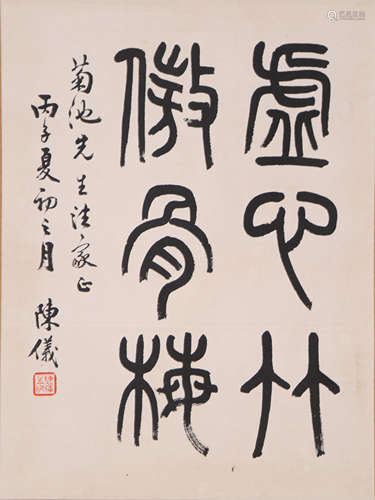 虛心竹
傲骨梅
菊池先生法家正
丙子夏初之月
陳儀